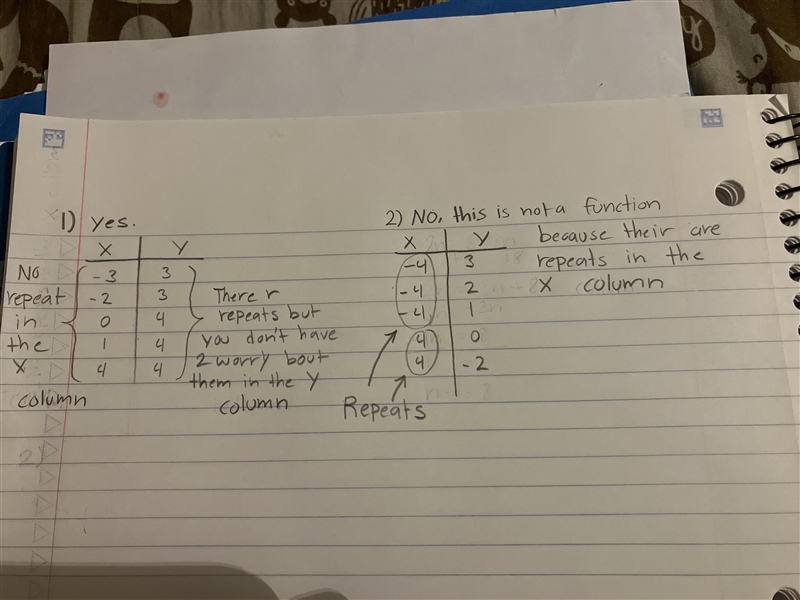 1) yes.
X Y
-3 3
-2 3
0 4
1 4
4 4
No
repeat
in
the
X
column
There r
repeats but
you don't have
2 worry bout
them in the Y
column
2) No, this is not a function
because their are
repeats in the
X column
X Y
-4 3
-4 2
-4 1
4 0
4 -2
Repeats